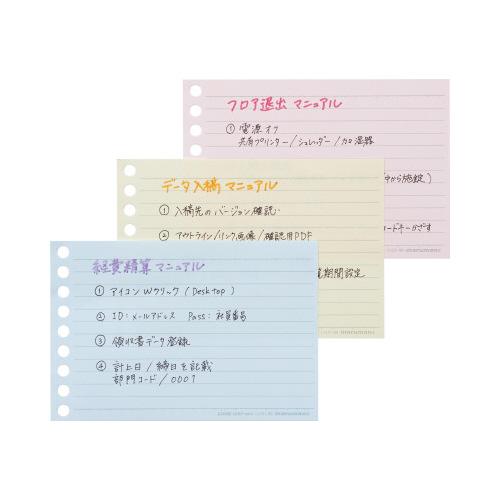 フロア退出 マニュアル
① 電源オフ
共有プリンター/シュレッダー/加湿器
中から施錠)
コードキーかざす
データ入稿 マニュアル
① 入稿先のバージョン確認
② アウトライン/リンク画像/確認用PDF
期間設定
経費精算 マニュアル
① アイコンWクリック (Desktop)
② ID:メールアドレス Pass:社員番号
③ 領収書データ登録
④ 計上日/締日を記載
部門コード/0007